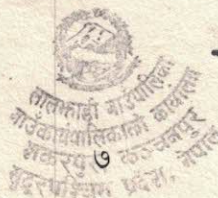 लालझाडी गाउँपालिका
गाउँकार्यपालिकाको कार्यालय
७ कञ्चनपुर
सुदूरपश्चिम प्रदेश, नेपाल